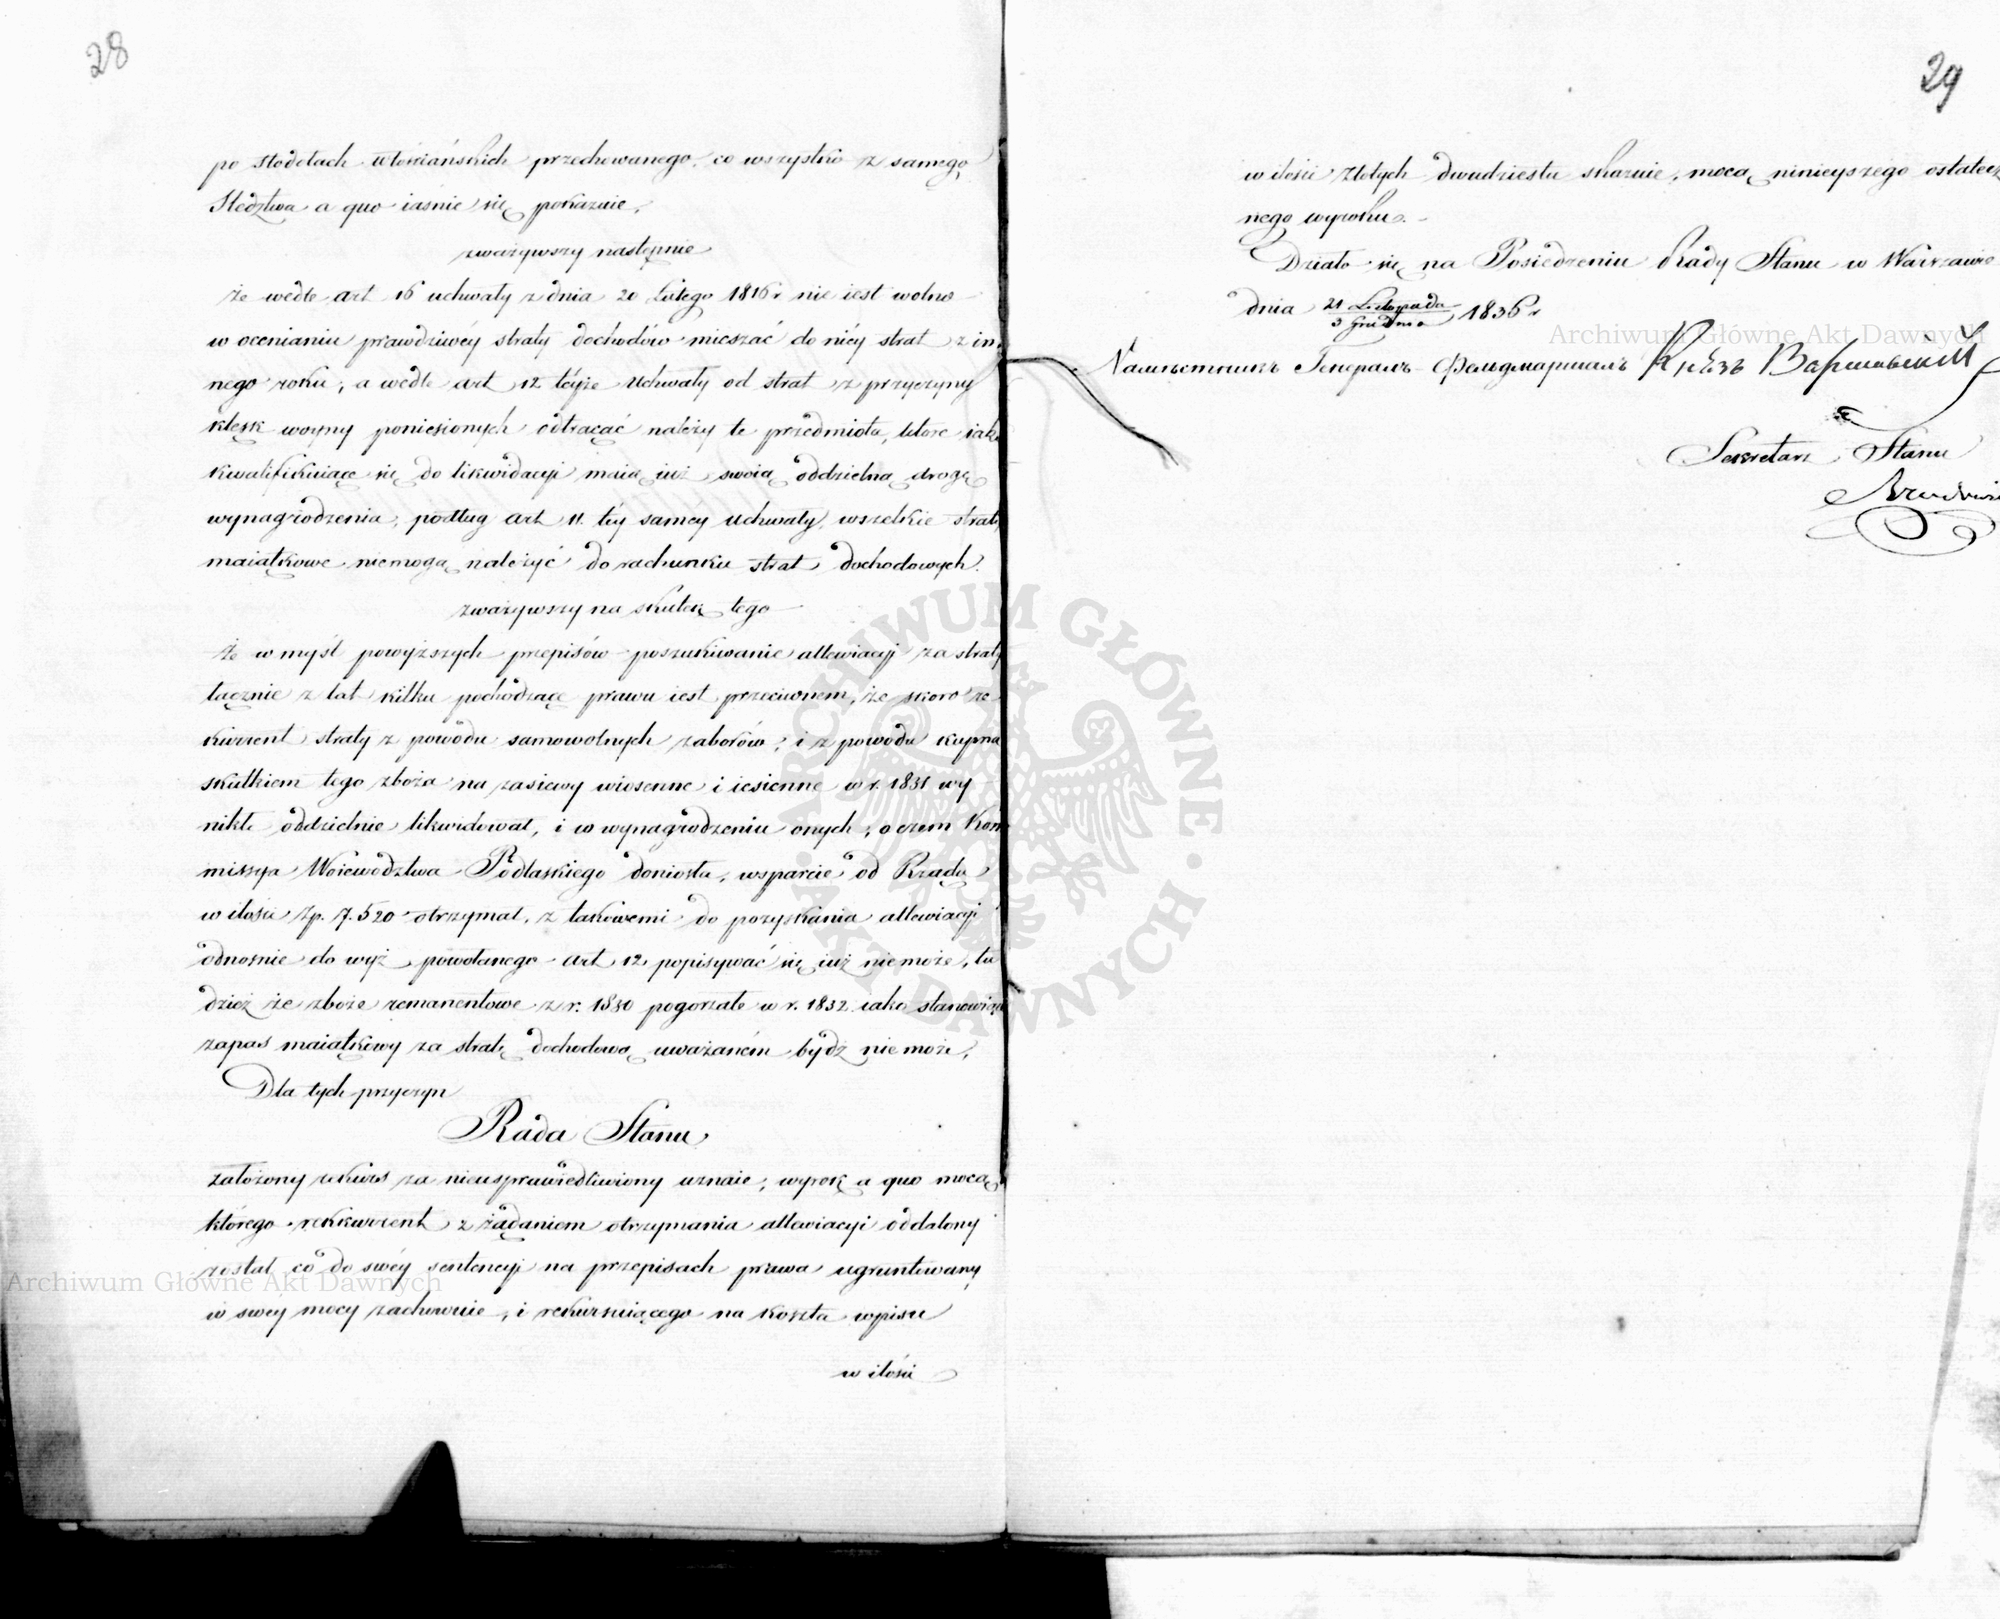 28
po stodołach włościańskich przechowanego, co wszystko z samego
Śledztwa a quo iaśnie się pokazuie,
zważywszy następnie
że wedle art 16 uchwały z dnia 20 Lutego 1816 r nie iest wolno
w ocenianiu prawdziwéy straty dochodów mieszać do niéy strat z in-
nego roku, a wedle art 12 téyże Uchwały od strat z przyczyny
klęsk woyny poniesionych odtrącać należy te przedmiota, które iako
kwalifikuiące się do likwidacyi maią iuż swoią oddzielną drogę
wynagrodzenia, podług art 11. téy samey Uchwały, wszelkie straty
maiątkowe niemogą należyć do rachunku strat dochodowych.
zważywszy na skutek tego
że w myśl powyższych przepisów poszukiwanie allewiacyi za straty
łącznie z lat kilku pochodzące prawu iest przeciwnem, że skoro re-
kurrent straty z powodu samowolnych zaborów, i z powodu kupna
skutkiem tego zboża na zasiewy wiosenne i iesienne w r. 1831 wy
nikłe oddzielnie likwidował, i w wynagrodzeniu onych, o czem Kom
missya Woiewództwa Podlaskiego doniosła, wsparcie od Rządu
w ilości Zp. 7.520 otrzymał, z takowemi do pozyskania allewiacyi
odnośnie do wyż powołanego art 12 popisywać się iuż nie może, tu
dzież że zboże remanentowe z r. 1830 pogorzałe w r. 1832 iako stanowiące
zapas maiątkowy za stratę dochodową uważaném bydź nie może,
Dla tych przyczyn
Rada Stanu
założony rekurs za nieusprawiedliwiony uznaie, wyrok a quo mocą
którego rekkurrent z żądaniem otrzymania allewiacyi oddalony
został co do swéy sentencyi na przepisach prawa ugruntowany
w swey mocy zachowuie, i rekursuiącego na koszta wpisu
w ilości
29
w ilości Złotych dwudziestu skazuie, mocą ninieyszego ostatecz
nego wyroku.
Działo się na Posiedzeniu Rady Stanu w Warszawie
dnia 21 Listopada / 3 Grudnia 1836 r
Намѣстникъ Генералъ-Фельдмаршалъ Князь Варшавскій
Sekretarz Stanu
Archiwum Główne Akt Dawnych
Archiwum Główne Akt Dawnych
ARCHIWUM GŁÓWNE AKT DAWNYCH